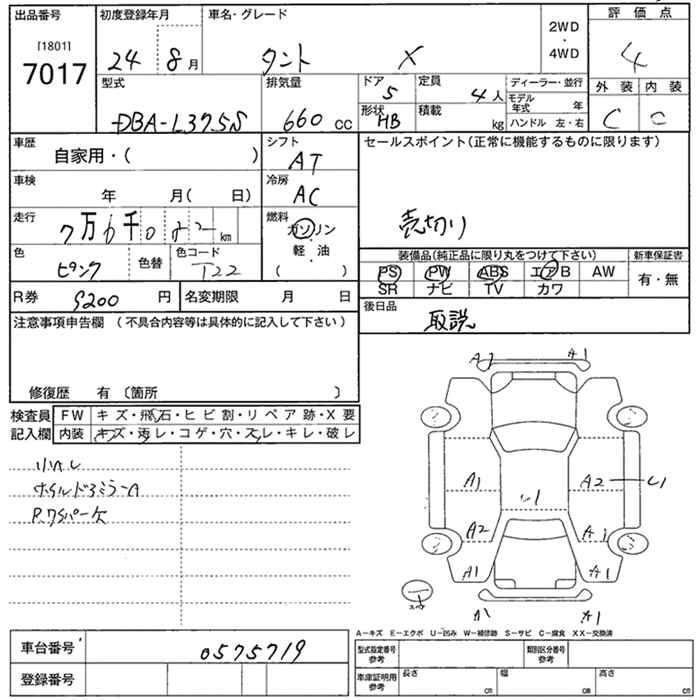 出品番号 初度登録年月 車名・グレード 2WD・4WD 評価点
[1801]
7017
24 8月 タント X 4
型式 排気量 ドア 5 定員 4人 ディーラー・並行 外装 内装
DBA-L375S 660cc 形状 HB 積載 kg モデル年式 年 C C
ハンドル 左・右
車歴 シフト セールスポイント(正常に機能するものに限ります)
自家用・( ) AT
車検 冷房
年 月( 日) AC
走行 燃料 売切り
7万6千 km ガソリン
軽・油
( )
色 色替 色コード 装備品(純正品に限り丸をつけて下さい) 新車保証書
ピンク T22 PS PW ABS エアB AW 有・無
SR ナビ TV カワ
R券 9200円 名変期限 月 日 後日品
取説
注意事項申告欄 (不具合内容等は具体的に記入して下さい)
修復歴 有 〔箇所 〕
A1
検査員 FW キズ・飛石・ヒビ割・リペア跡・X要
記入欄 内装 キズ・汚レ・コゲ・穴・スレ・キレ・破レ
A1 A2
A2 A1
A1 A1
A1
A-キズ E-エクボ U-凹み W-補修跡 S-サビ C-腐食 XX-交換済
車台番号 0575719 型式指定番号 参考 類別区分番号 参考
登録番号 車庫証明用 参考 長さ cm 幅 cm 高さ cm